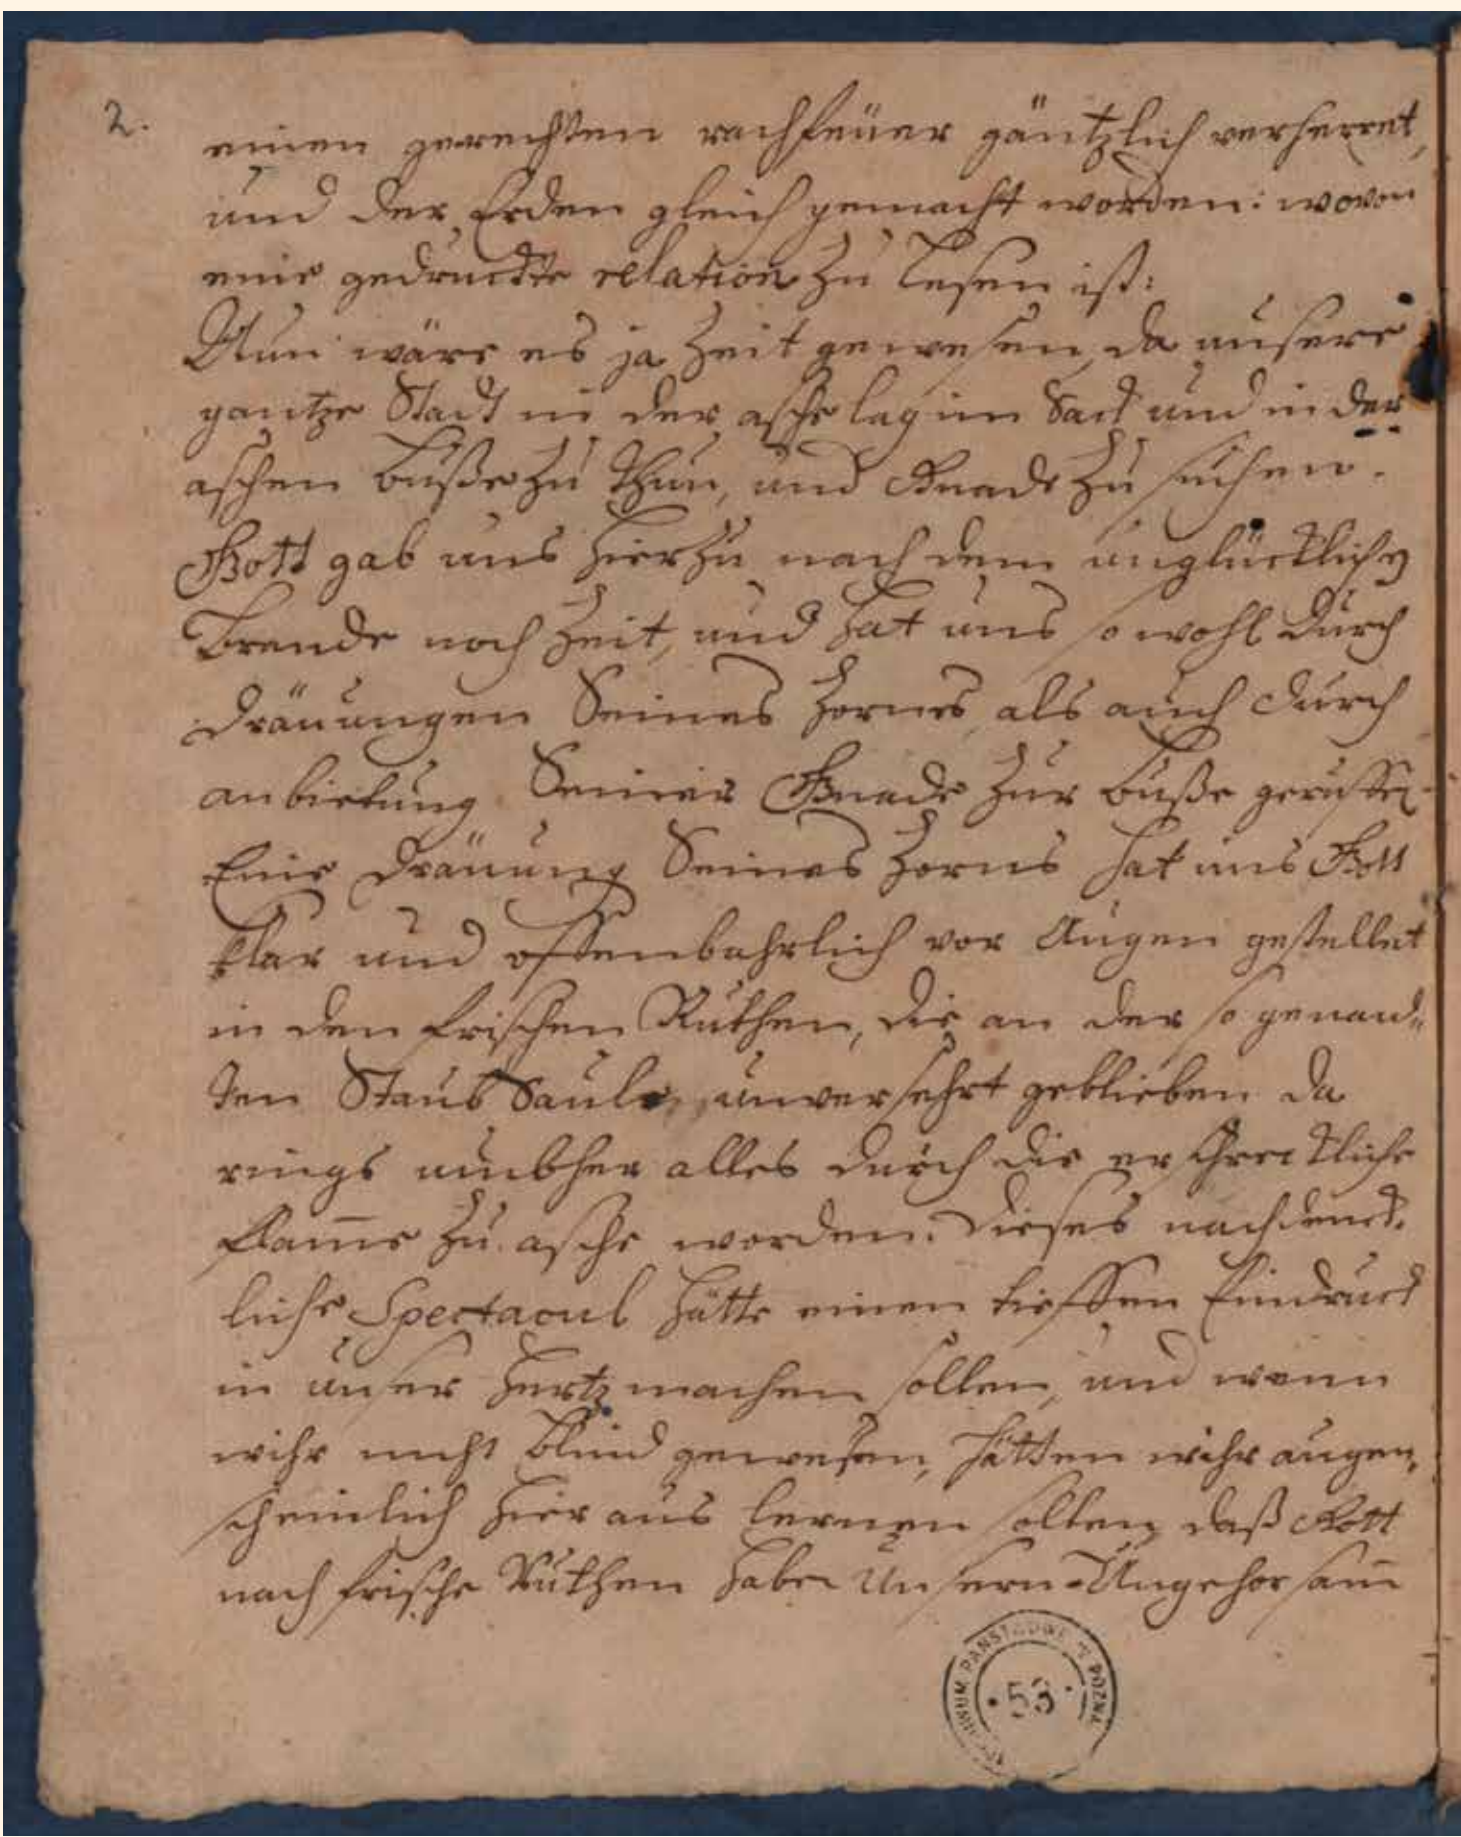 2.
einen gerechten rachfeüer gäntzlich verheeret,
und der Erden gleich gemacht worden: wovon
eine gedruckte relation zu lesen ist:
Nun wäre es ja Zeit gewesen, da unsere
gantze Stadt in der asche lag im Sack und in der
aschen buße zu thun, und Gnade zu suchen.
Gott gab uns hierzu nach dem unglücklichen
Brande noch Zeit, und hat uns so wohl durch
dräuungen Seines Zornes, als auch durch
anbietung Seiner Gnade zur buße geruffen.
Eine dräuung Seines Zorns hat uns Gott
klar und offenbahrlich vor Augen gestellet
in den frischen Ruthen, die an der so genand„
ten Staub Säule, unversehrt geblieben da
rings umbher alles durch die erschreckliche
flam̄e zu asche worden. Dieses nachdenck„
liche Spectacul hätte einen tieffen Eindruck
in unser hertz machen sollen, und wenn
wihr nicht blind gewesen, hätten wihr augen„
scheinlich hier aus lernen sollen, daß Gott
noch frische Ruthen habe Unsern Ungehorsam̄
ARCHIWUM PAŃSTWOWE W POZNA
53